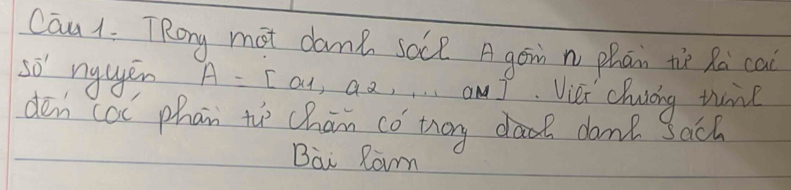 Câu 1: TRong một danh sách A gồm n phần tử là các
số nguyên A = [a1, a2, ... aN]. Viết chương trình
đến các phần tử chẵn có trong danh sách
Bài làm